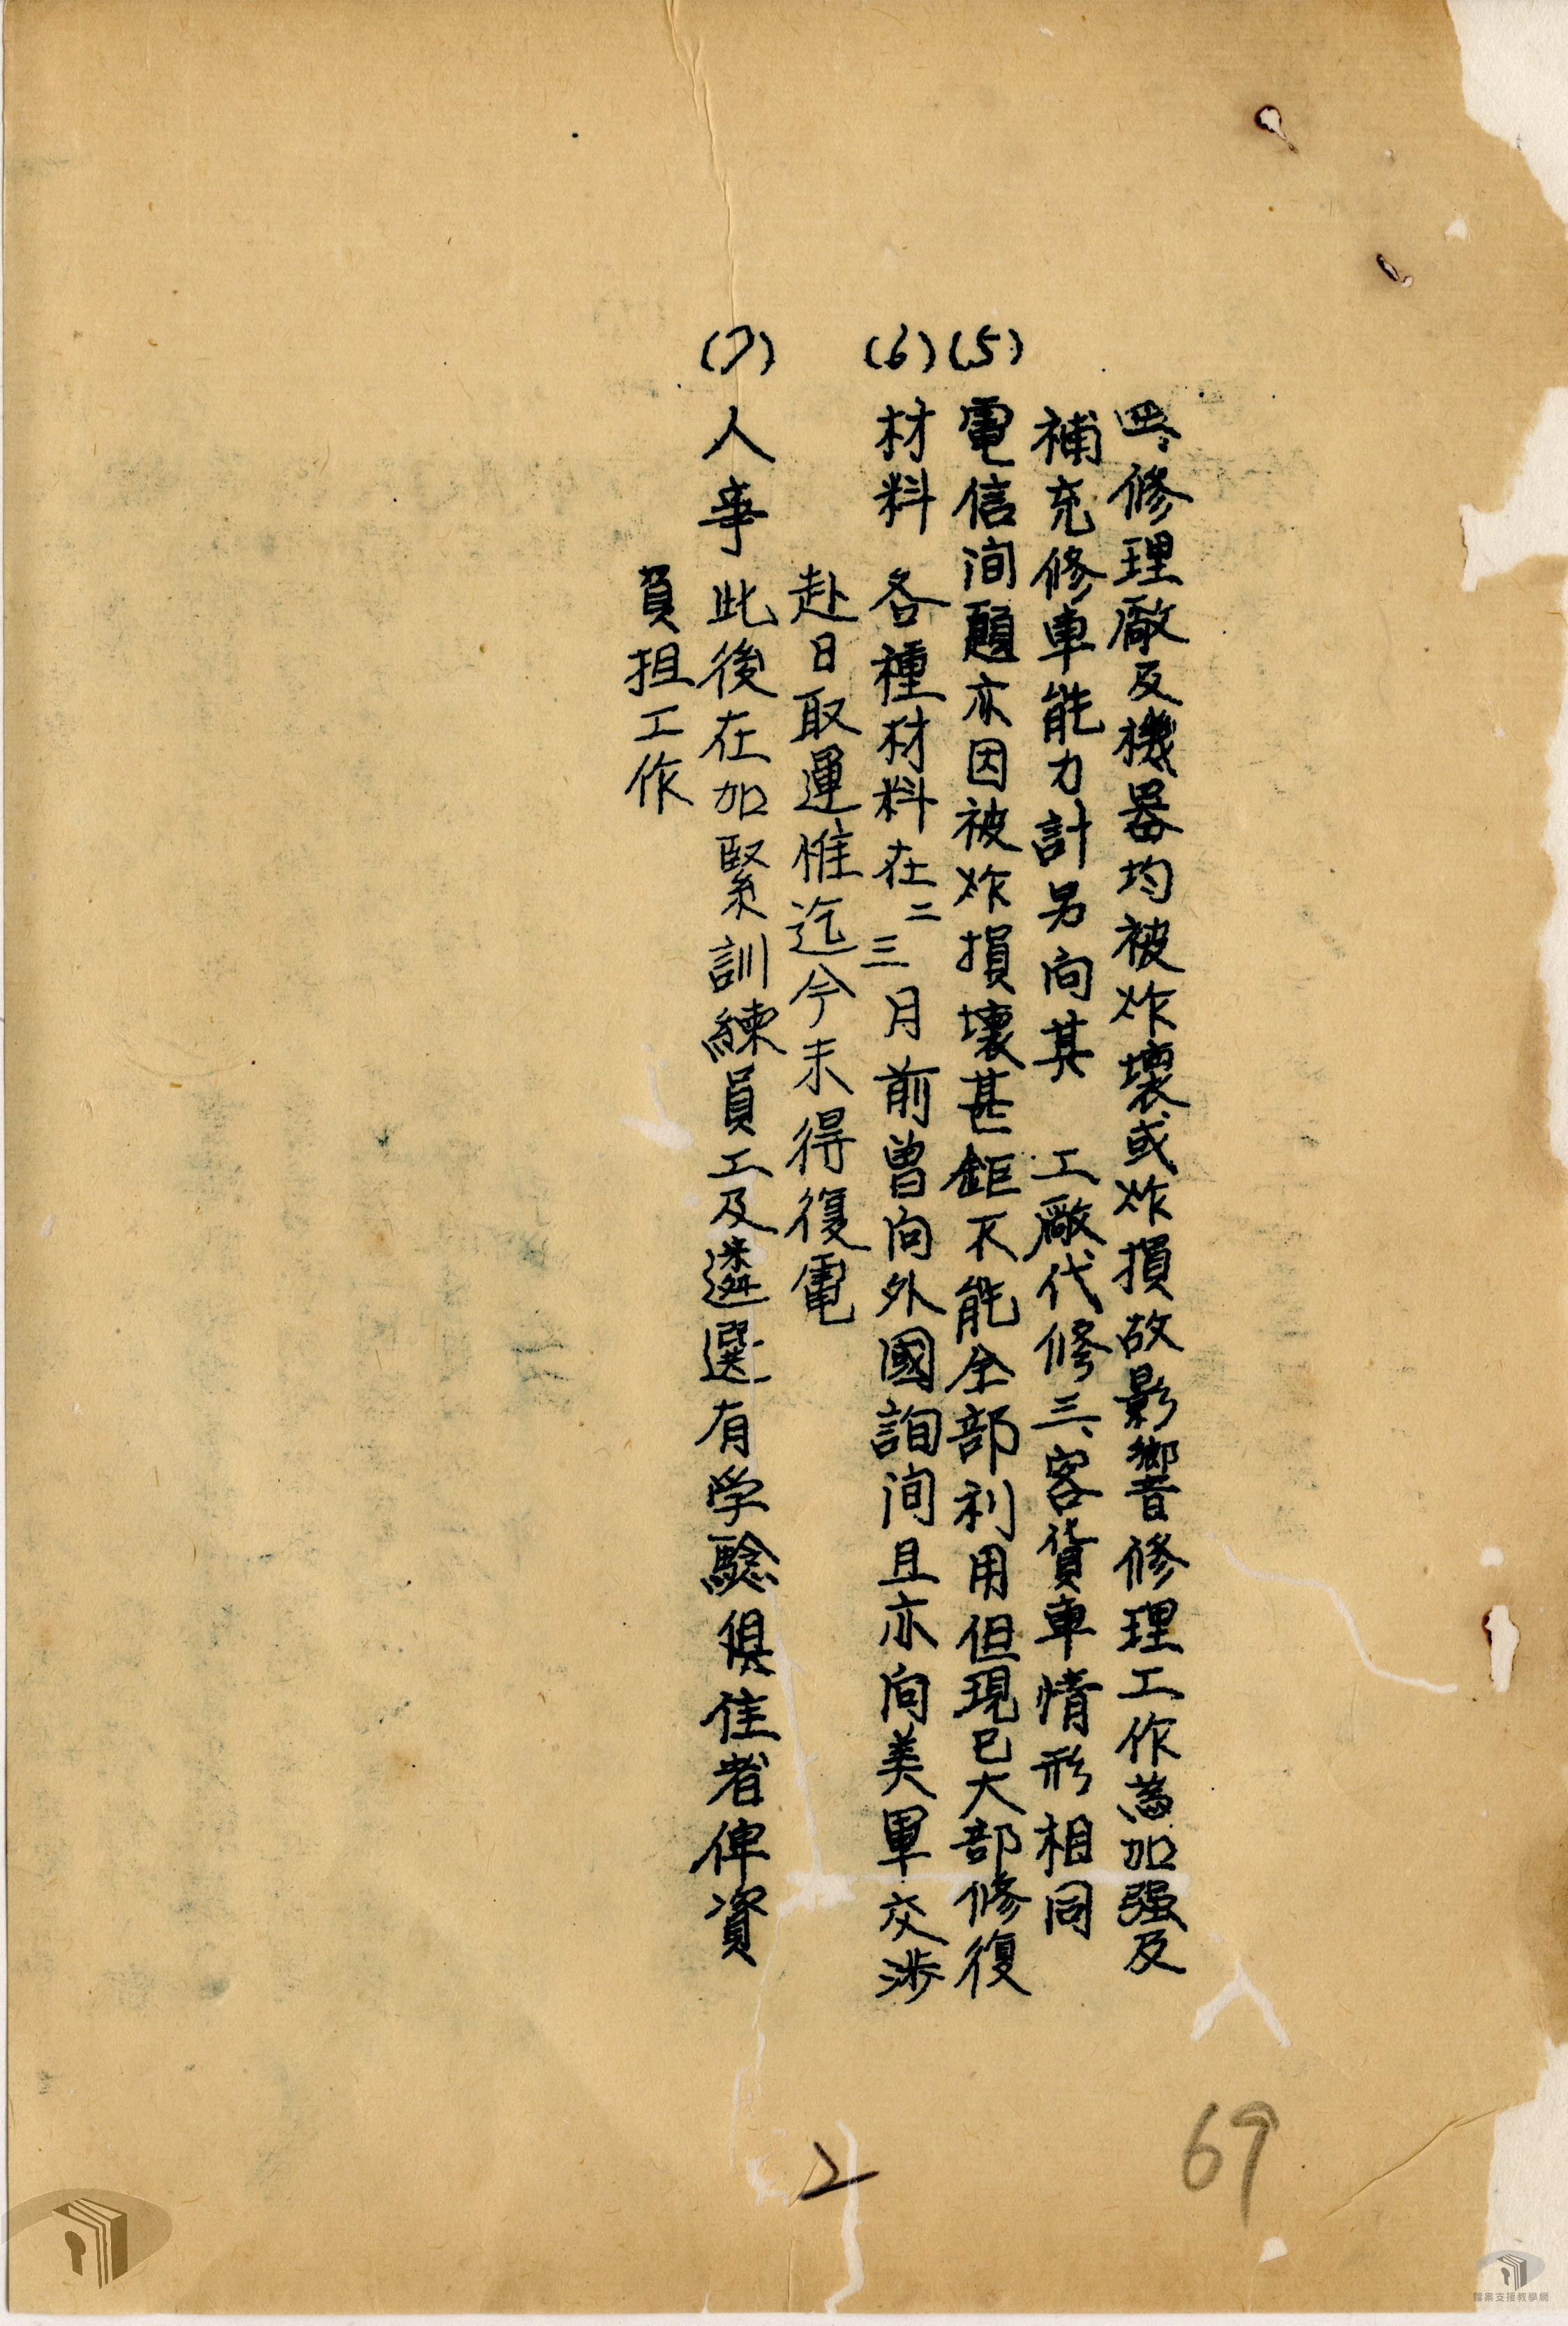 四、修理廠及機器均被炸壞或炸損故影響修理工作為加强及
補充修車能力計另向其 工廠代修三、客貨車情形相同
(5) 電信问題亦因被炸損壞甚鉅不能全部利用但現已大部修復
(6) 材料 各種材料在二三月前曾向外國詢问且亦向美軍交涉
赴日取運惟迄今未得復電
(7) 人事 此後在加緊訓練員工及遴選有学驗俱佳者俾資
負担工作
2
69
檔案支援教學網